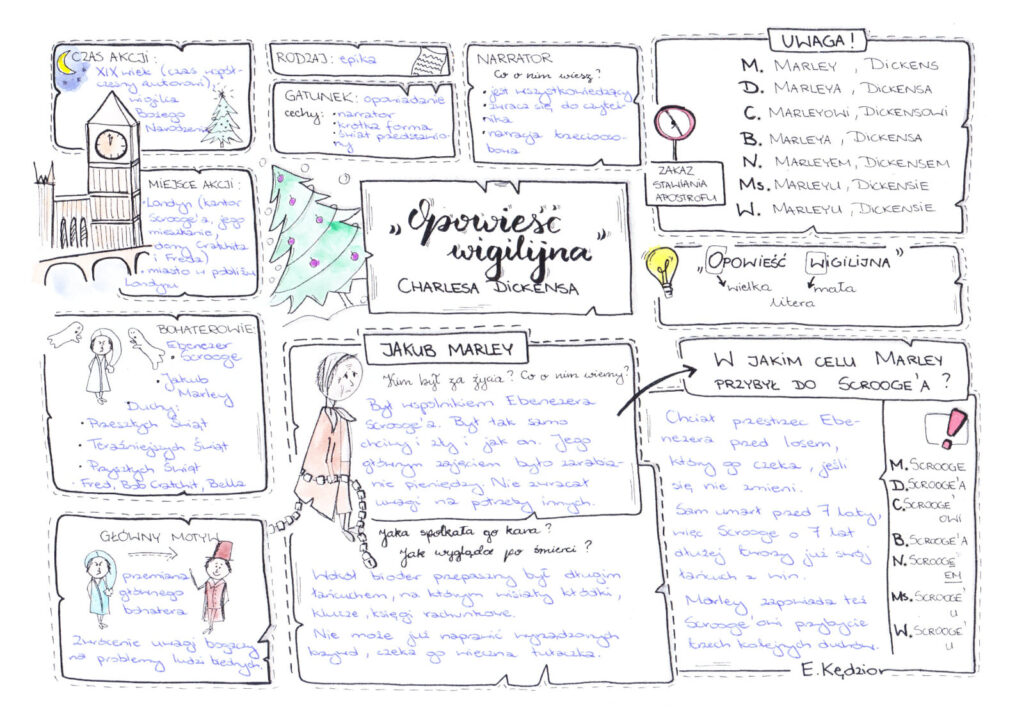 CZAS AKCJI:
XIX wiek (czas współ-
czesny autorowi),
wigilia
Bożego
Narodzenia
RODZAJ: epika
GATUNEK: opowiadanie
cechy:
• narrator
• krótka forma
• świat przedstawio-
ny
NARRATOR
Co o nim wiesz?
• jest wszystkowiedzący
• zwraca się do czytel-
nika
• narracja trzecioso-
bowa
UWAGA!
M. MARLEY, DICKENS
D. MARLEYA, DICKENSA
C. MARLEYOWI, DICKENSOWI
B. MARLEYA, DICKENSA
N. MARLEYEM, DICKENSEM
Ms. MARLEYU, DICKENSIE
W. MARLEYU, DICKENSIE
ZAKAZ
STAWIANIA
APOSTROFU
MIEJSCE AKCJI:
• Londyn (kantor
Scrooge'a, jego
mieszkanie,
domy Cratchita
i Freda)
• miasto w pobliżu
Londynu
„Opowieść
wigilijna"
CHARLESA DICKENSA
„OPOWIEŚĆ WIGILIJNA"
wielka mała
litera
BOHATEROWIE:
Ebenezer
• Scrooge
• Jakub
Marley
Duchy:
• Przeszłych Świąt
• Teraźniejszych Świąt
• Przyszłych Świąt
• Fred, Bob Cratchit, Bella
JAKUB MARLEY
Kim był za życia? Co o nim wiemy?
Był wspólnikiem Ebenezera
Scrooge'a. Był tak samo
chciwy i zły i jak on. Jego
głównym zajęciem było zarabia-
nie pieniędzy. Nie zwracał
uwagi na potrzeby innych.
Jaka spotkała go kara?
Jak wyglądał po śmierci?
Wokół bioder przepasany był długim
łańcuchem, na którym wisiały kłódki,
klucze, księgi rachunkowe.
Nie może już naprawić wyrządzonych
krzywd, czeka go wieczna tułaczka.
W JAKIM CELU MARLEY
PRZYBYŁ DO SCROOGE'A?
Chciał przestrzec Ebe-
nezera przed losem,
który go czeka, jeśli
się nie zmieni.
Sam umarł przed 7 laty,
więc Scrooge o 7 lat
dłużej tworzy już swój
łańcuch z win.
Marley zapowiada też
Scrooge'owi przybycie
trzech kolejnych duchów.
M. SCROOGE
D. SCROOGE'A
C. SCROOGE'
OWI
B. SCROOGE'A
N. SCROOGE
EM
Ms. SCROOGE'
U
W. SCROOGE'
U
GŁÓWNY MOTYW
przemiana
głównego
bohatera
Zwrócenie uwagi bogaczy
na problemy ludzi biednych.
E. Kędzior